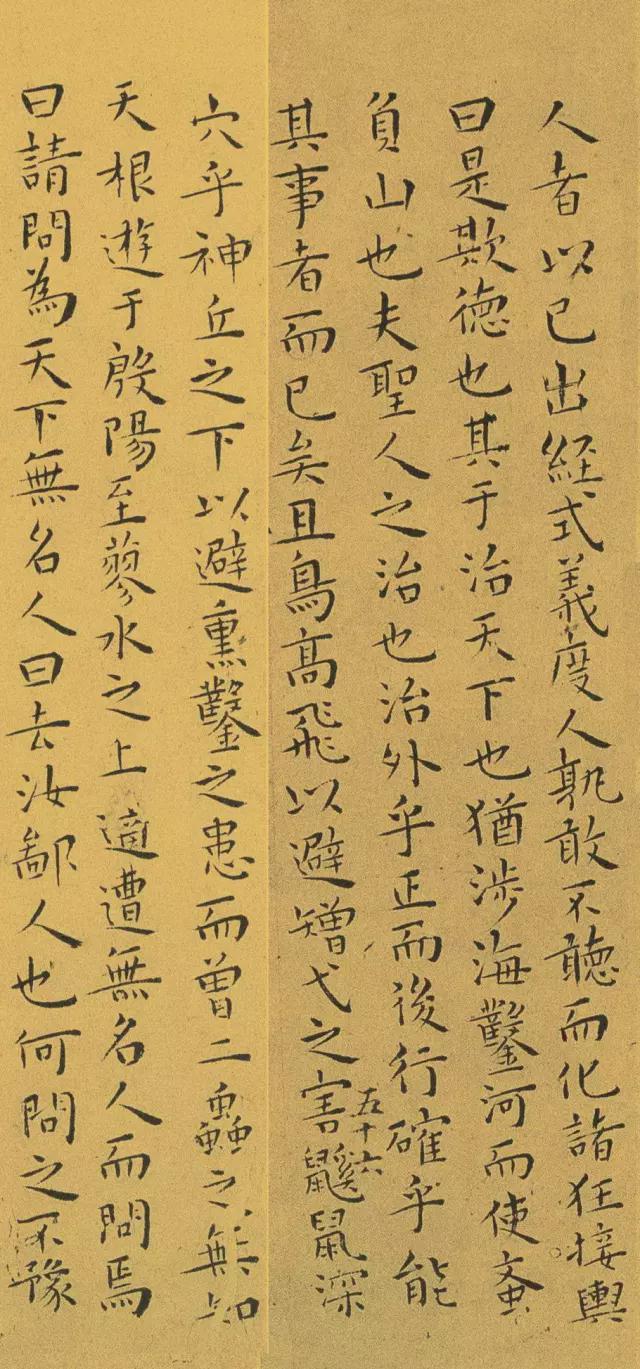 人者以己出経式義度人孰敢不聴而化諸狂接輿
曰是欺徳也其于治天下也猶涉海鑿河而使蚉
負山也夫聖人之治也治外乎正而後行確乎能
其事者而已矣且鳥高飛以避矰弋之害鼷鼠深
五十六
穴乎神丘之下以避熏鑿之患而曾二蟲之無知
天根遊于殷陽至蓼水之上適遭無名人而問焉
曰請問為天下無名人曰去汝鄙人也何問之不豫